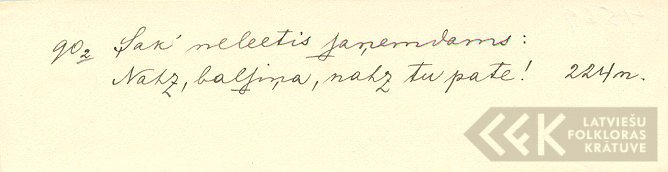 90₂ Sak' neleetis saņemdams:
Nahz, balsiņa, nahz tu pate! 224n.
LATVIEŠU
FOLKLORAS
KRĀTUVE